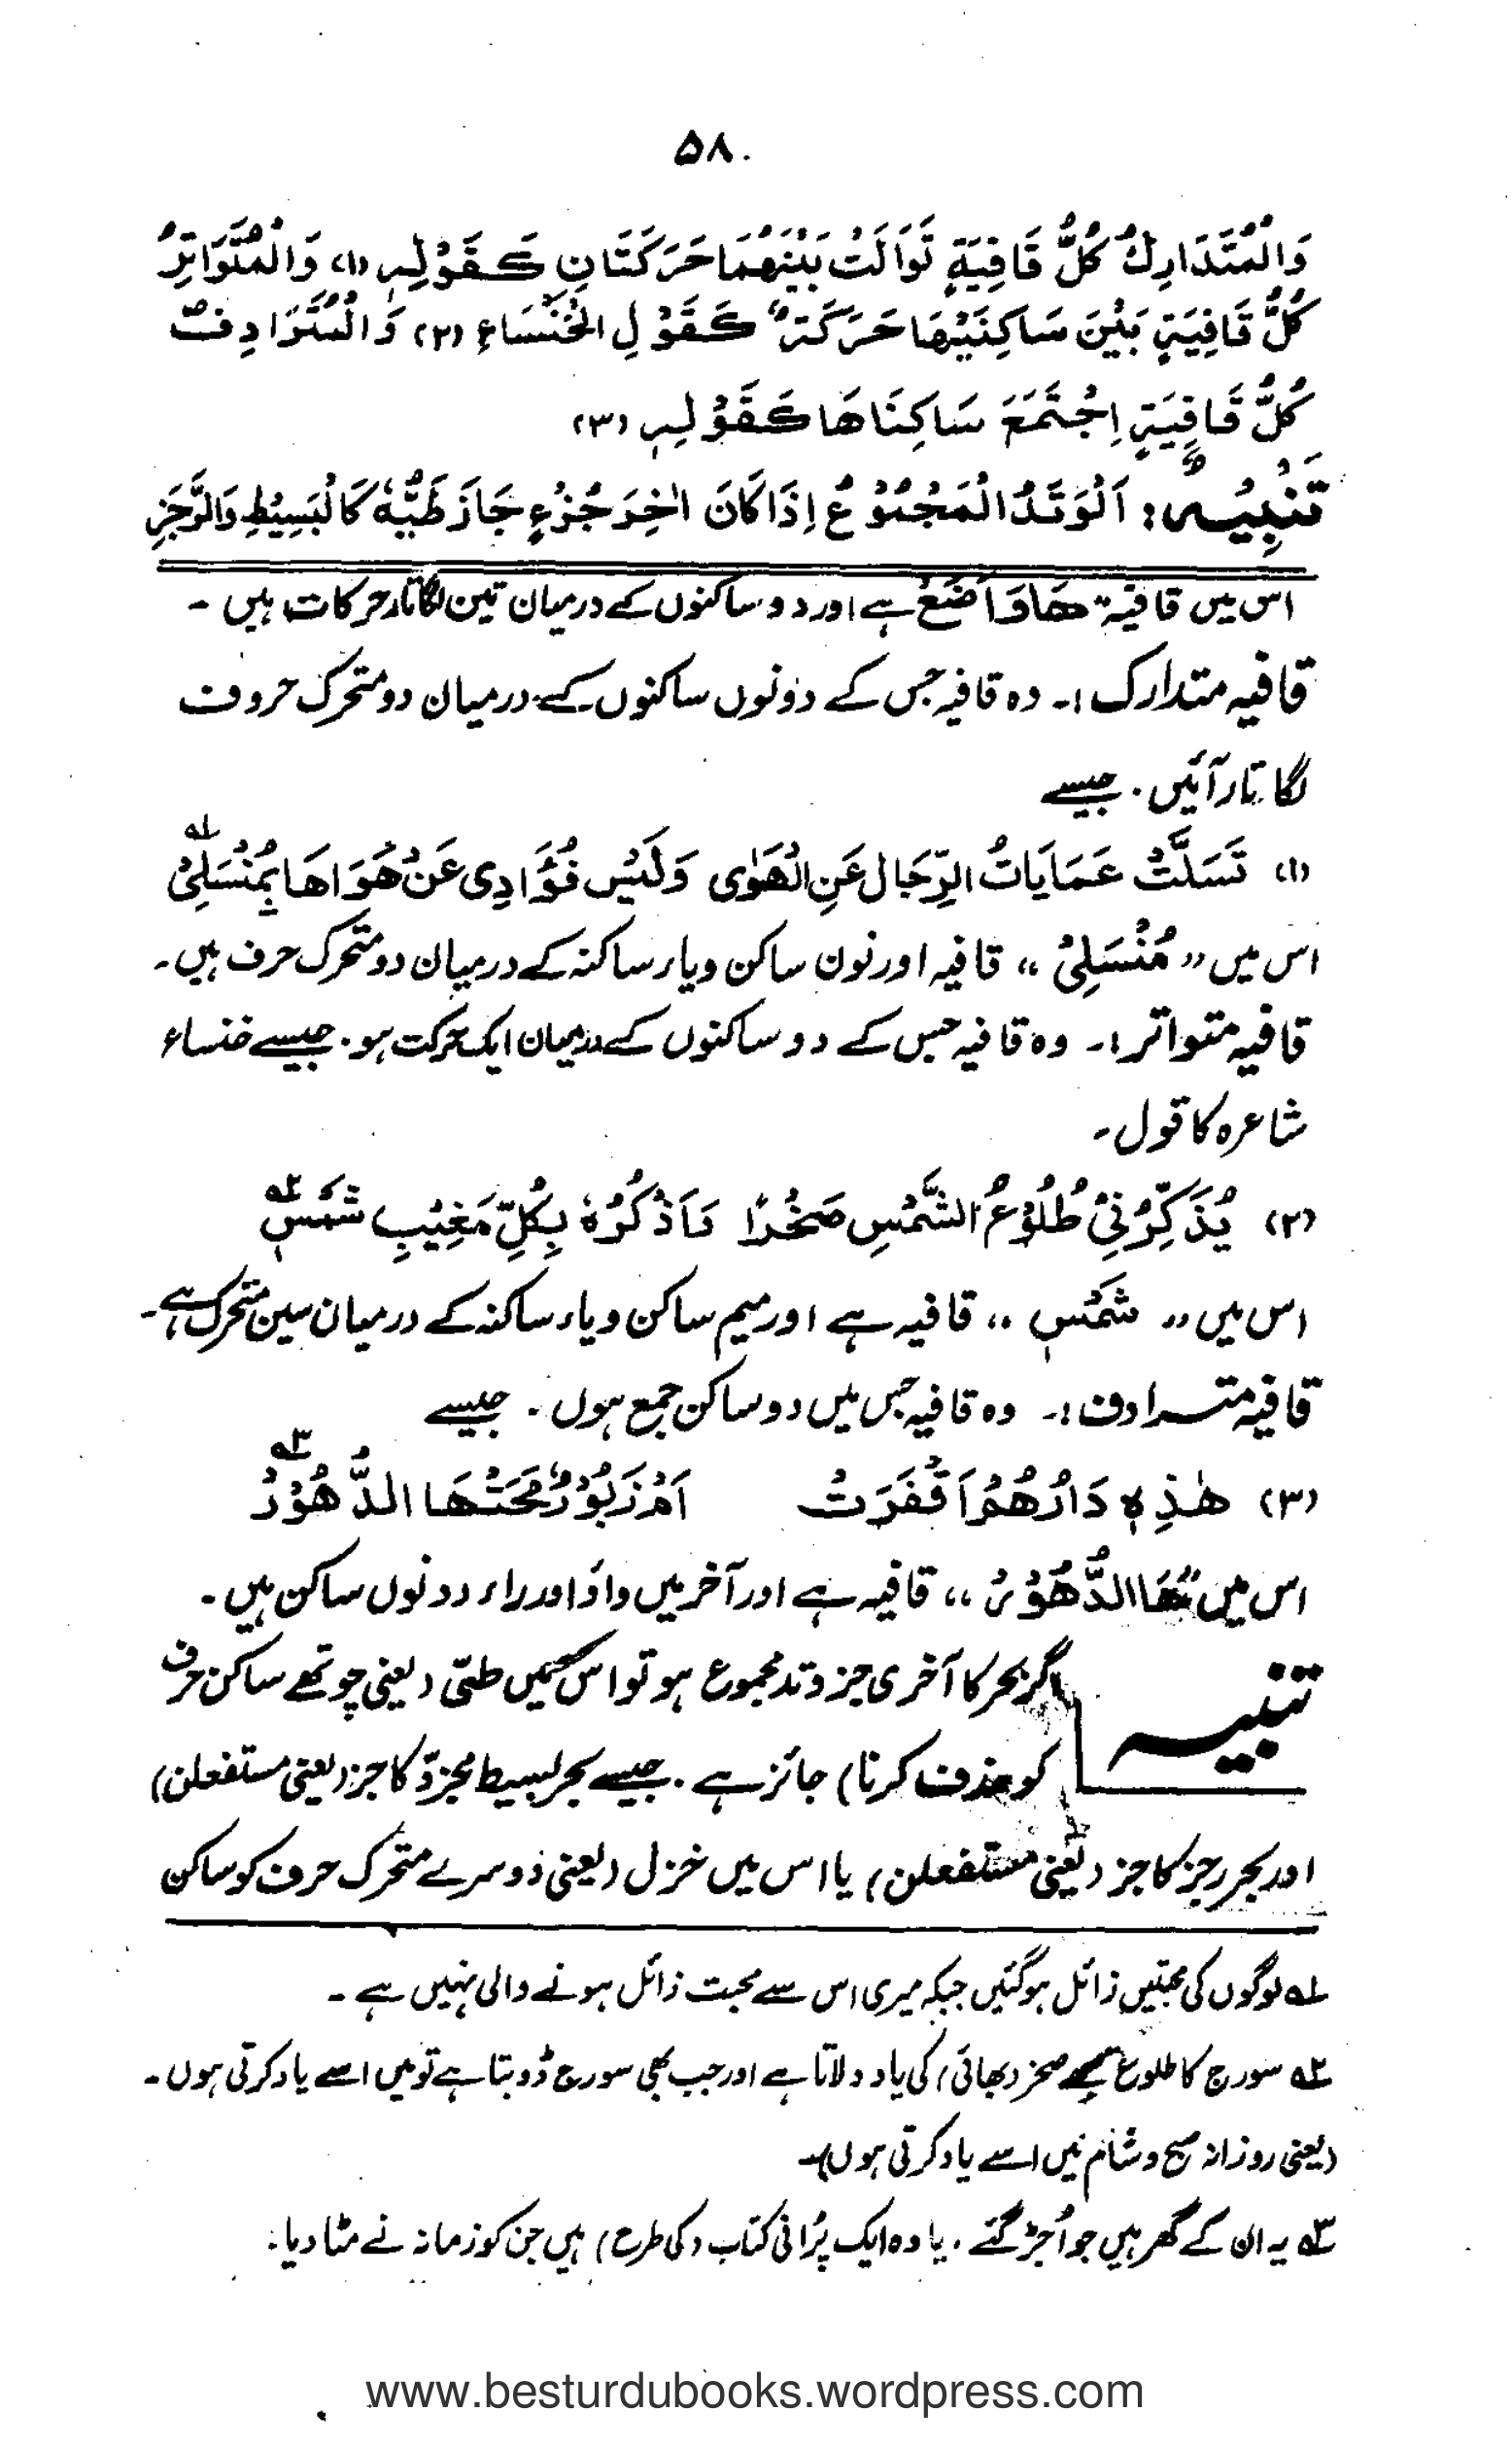 ۵۸
وَالْمُتَدَارِكُ كُلُّ قَافِيَةٍ تَوَالَتْ بَيْنَهُمَا حَرَكَتَانِ كَقَوْلِهٖ (۱) وَالْمُتَوَاتِرُ
كُلُّ قَافِيَةٍ بَيْنَ سَاكِنَيْهَا حَرَكَةٌ كَقَوْلِ الْخَنْسَاءِ (۲) وَالْمُتَرَادِفُ
كُلُّ قَافِيَةٍ اِجْتَمَعَ سَاكِنَاهَا كَقَوْلِهٖ (۳)
تَنْبِيْهٌ: اَلْوَتَدُ الْمَجْمُوْعُ اِذَا كَانَ اٰخِرَ جُزْءٍ جَازَ طَيُّهٗ كَالْبَسِيْطِ وَالرَّجَزِ
اس میں قافیہ "هَا وَاَضَعْ" ہے اور دو ساکنوں کے درمیان تین لگاتار حرکات ہیں ۔
قافیہ متدارک :۔ وہ قافیہ جس کے دونوں ساکنوں کے درمیان دو متحرک حروف
لگاتار آئیں ۔ جیسے
(۱) تَسَلَّتْ عَمَايَاتُ الرِّجَالِ عَنِ الْهَوٰى وَلَيْسَ فُؤَادِى عَنْ هَوَاهَا بِمُنْسَلِىْ ۱ہ
اس میں "مُنْسَلِىْ" قافیہ اور نون ساکن ویاء ساکنہ کے درمیان دو متحرک حرف ہیں ۔
قافیہ متواتر :۔ وہ قافیہ جس کے دو ساکنوں کے درمیان ایک حرکت ہو ۔ جیسے خنساء
شاعرہ کا قول ۔
(۲) يُذَكِّرُنِىْ طُلُوْعُ الشَّمْسِ صَخْرًا وَاَذْكُرُهٗ بِكُلِّ مَغِيْبِ شَمْسٖ ۲ہ
اس میں "شَمْسٖ" قافیہ ہے اور میم ساکن ویاء ساکنہ کے درمیان سین متحرک ہے ۔
قافیہ مترادف :۔ وہ قافیہ جس میں دو ساکن جمع ہوں ۔ جیسے
(۳) هٰذِهٖ دَارُهُمْ اَقْفَرَتْ اَمْ زَبُوْرٌ مَحَتْهَا الدُّهُوْرْ ۳ہ
اس میں "تْهَا الدُّهُوْرْ" قافیہ ہے اور آخر میں واؤ اور راء دونوں ساکن ہیں ۔
تنبیہ اگر بحر کا آخری جز وتد مجموع ہو تو اس میں طیّ (یعنی چوتھے ساکن حرف
کو حذف کرنا) جائز ہے ۔ جیسے بحر بسیط مجزوّ کا جز (یعنی مستفعلن)
اور بحر رجز کا جز (یعنی مستفعلن) یا اس میں خزل (یعنی دوسرے متحرک حرف کو ساکن
۱ہ لوگوں کی محبتیں زائل ہوگئیں جبکہ میری اس سے محبت زائل ہونے والی نہیں ہے ۔
۲ہ سورج کا طلوع مجھے صخر (بھائی) کی یاد دلاتا ہے اور جب بھی سورج ڈوبتا ہے تو میں اسے یاد کرتی ہوں ۔
(یعنی روزانہ صبح وشام میں اسے یاد کرتی ہوں)۔
۳ہ یہ ان کے گھر ہیں جو اُجڑ گئے ، یا وہ ایک پُرانی کتاب (کی طرح) ہیں جن کو زمانہ نے مٹا دیا ۔
www.besturdubooks.wordpress.com